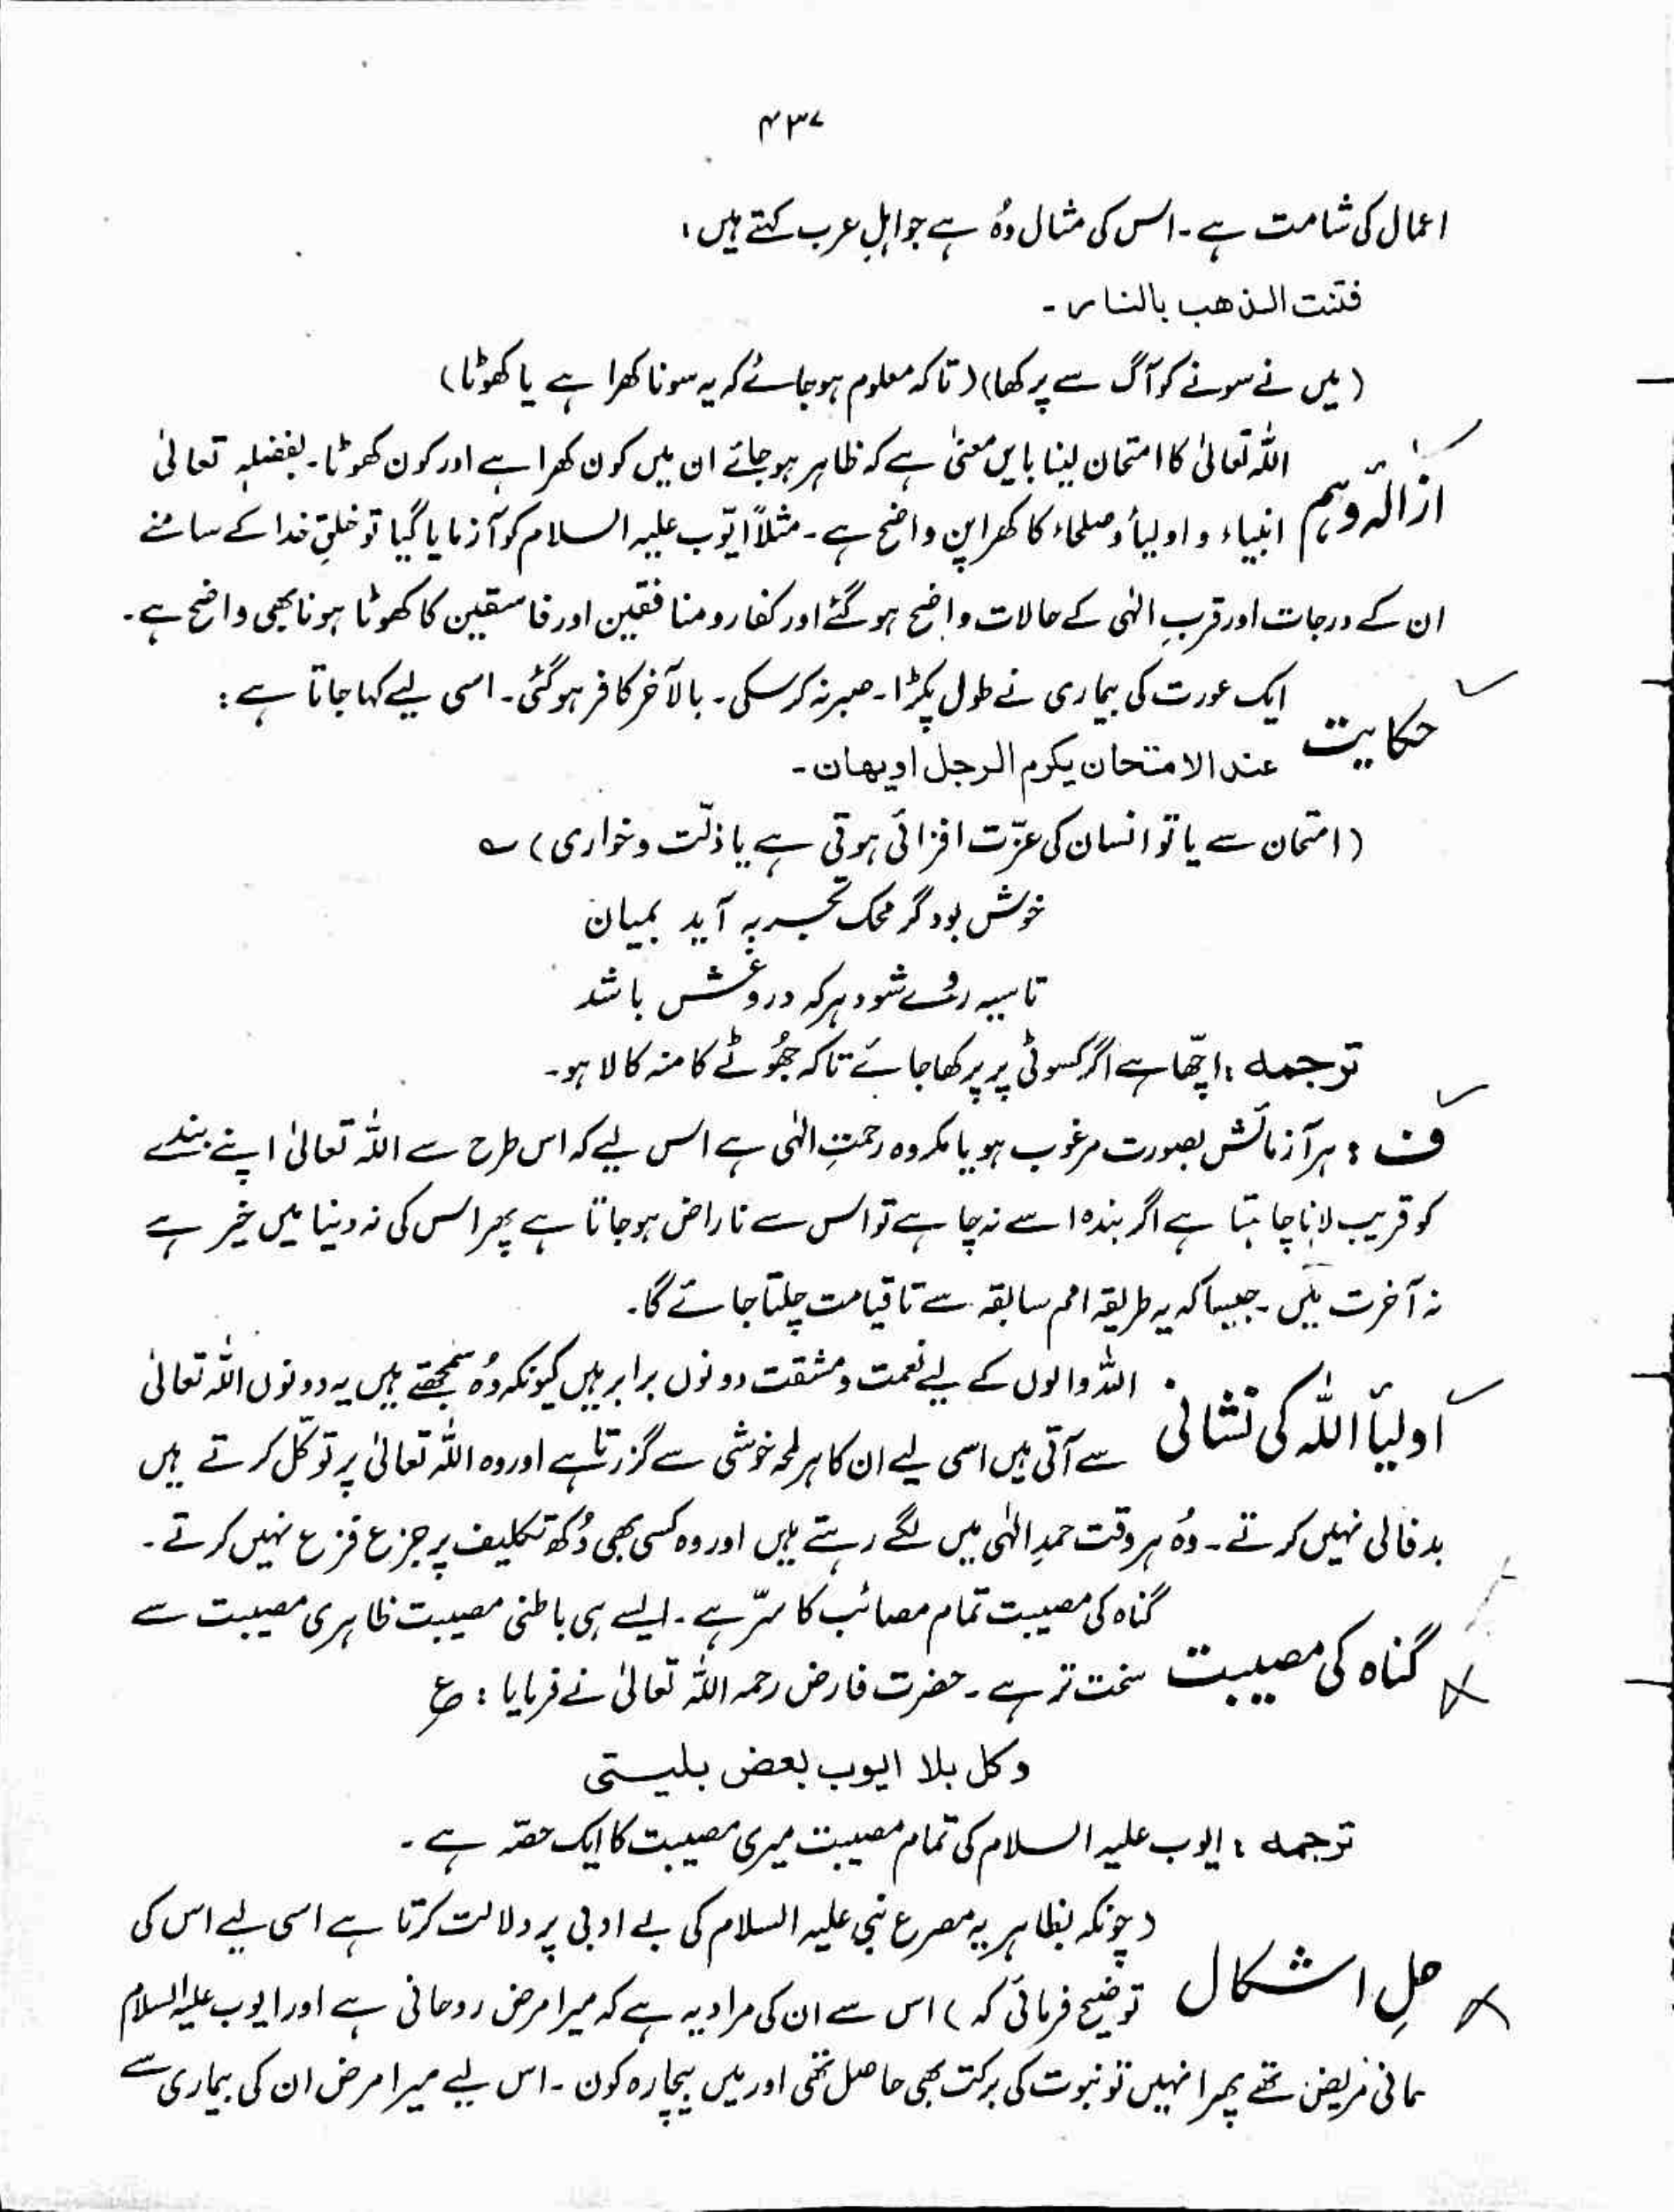 ۴۳۷
اعمال کی شامت ہے۔ اس کی مثال وُہ ہے جو اہلِ عرب کہتے ہیں:
فتنت الذهب بالنار۔
(میں نے سونے کو آگ سے پرکھا) (تاکہ معلوم ہو جائے کہ یہ سونا کھرا ہے یا کھوٹا)
ازالۂ وہم
اللہ تعالیٰ کا امتحان لینا بایں معنیٰ ہے کہ ظاہر ہو جائے ان میں کون کھرا ہے اور کون کھوٹا۔ بفضلہٖ تعالیٰ
انبیاء و اولیأ و صلحاء کا کھرا پن واضح ہے۔ مثلاً ایّوب علیہ السلام کو آزمایا گیا تو خلقِ خدا کے سامنے
ان کے درجات اور قربِ الٰہی کے حالات واضح ہو گئے اور کفار و منافقین اور فاسقین کا کھوٹا ہونا بھی واضح ہے۔
حکایت
ایک عورت کی بیماری نے طول پکڑا۔ صبر نہ کر سکی۔ بالآخر کافر ہو گئی۔ اسی لیے کہا جاتا ہے:
عند الامتحان یکرم الرجل او یھان۔
(امتحان سے یا تو انسان کی عزّت افزائی ہوتی ہے یا ذلّت و خواری) ؎
خوش بود گر محک تجربہ آید بمیان
تا سیہ روئے شود ہر کہ دروغش باشد
ترجمہ: اچّھا ہے اگر کسوٹی پر پرکھا جائے تاکہ جھُوٹے کا منہ کالا ہو۔
ف: ہر آزمائش بصورت مرغوب ہو یا مکروہ رحمتِ الٰہی ہے اس لیے کہ اس طرح سے اللہ تعالیٰ اپنے بندے
کو قریب لانا چاہتا ہے اگر بندہ اسے نہ چاہے تو اس سے ناراض ہو جاتا ہے پھر اس کی نہ دنیا میں خیر ہے
نہ آخرت میں۔ جیسا کہ یہ طریقہ امم سابقہ سے تا قیامت چلتا جائے گا۔
اولیأ اللہ کی نشانی
اللہ والوں کے لیے نعمت و مشقت دونوں برابر ہیں کیونکہ وُہ سمجھتے ہیں یہ دونوں اللہ تعالیٰ
سے آتی ہیں اسی لیے ان کا ہر لمحہ خوشی سے گزرتا ہے اور وہ اللہ تعالیٰ پر توکّل کرتے ہیں
بدفالی نہیں کرتے۔ وُہ ہر وقت حمدِ الٰہی میں لگے رہتے ہیں اور وہ کسی بھی دُکھ تکلیف پر جزع فزع نہیں کرتے۔
گناہ کی مصیبت
گناہ کی مصیبت تمام مصائب کا سرّ ہے۔ ایسے ہی باطنی مصیبت ظاہری مصیبت سے
سخت تر ہے۔ حضرت فارض رحمہ اللہ تعالیٰ نے فرمایا: ع
وکل بلا ایوب بعض بلیستی
ترجمہ: ایوب علیہ السلام کی تمام مصیبت میری مصیبت کا ایک حصّہ ہے۔
حلِ اشکال
(چونکہ بظاہر یہ مصرع نبی علیہ السلام کی بے ادبی پر دلالت کرتا ہے اسی لیے اس کی
توضیح فرمائی کہ) اس سے ان کی مراد یہ ہے کہ میرا مرض روحانی ہے اور ایوب علیہ السلام
مانی مریض تھے پھر انہیں تو نبوت کی برکت بھی حاصل تھی اور میں بیچارہ کون۔ اس لیے میرا مرض ان کی بیماری سے